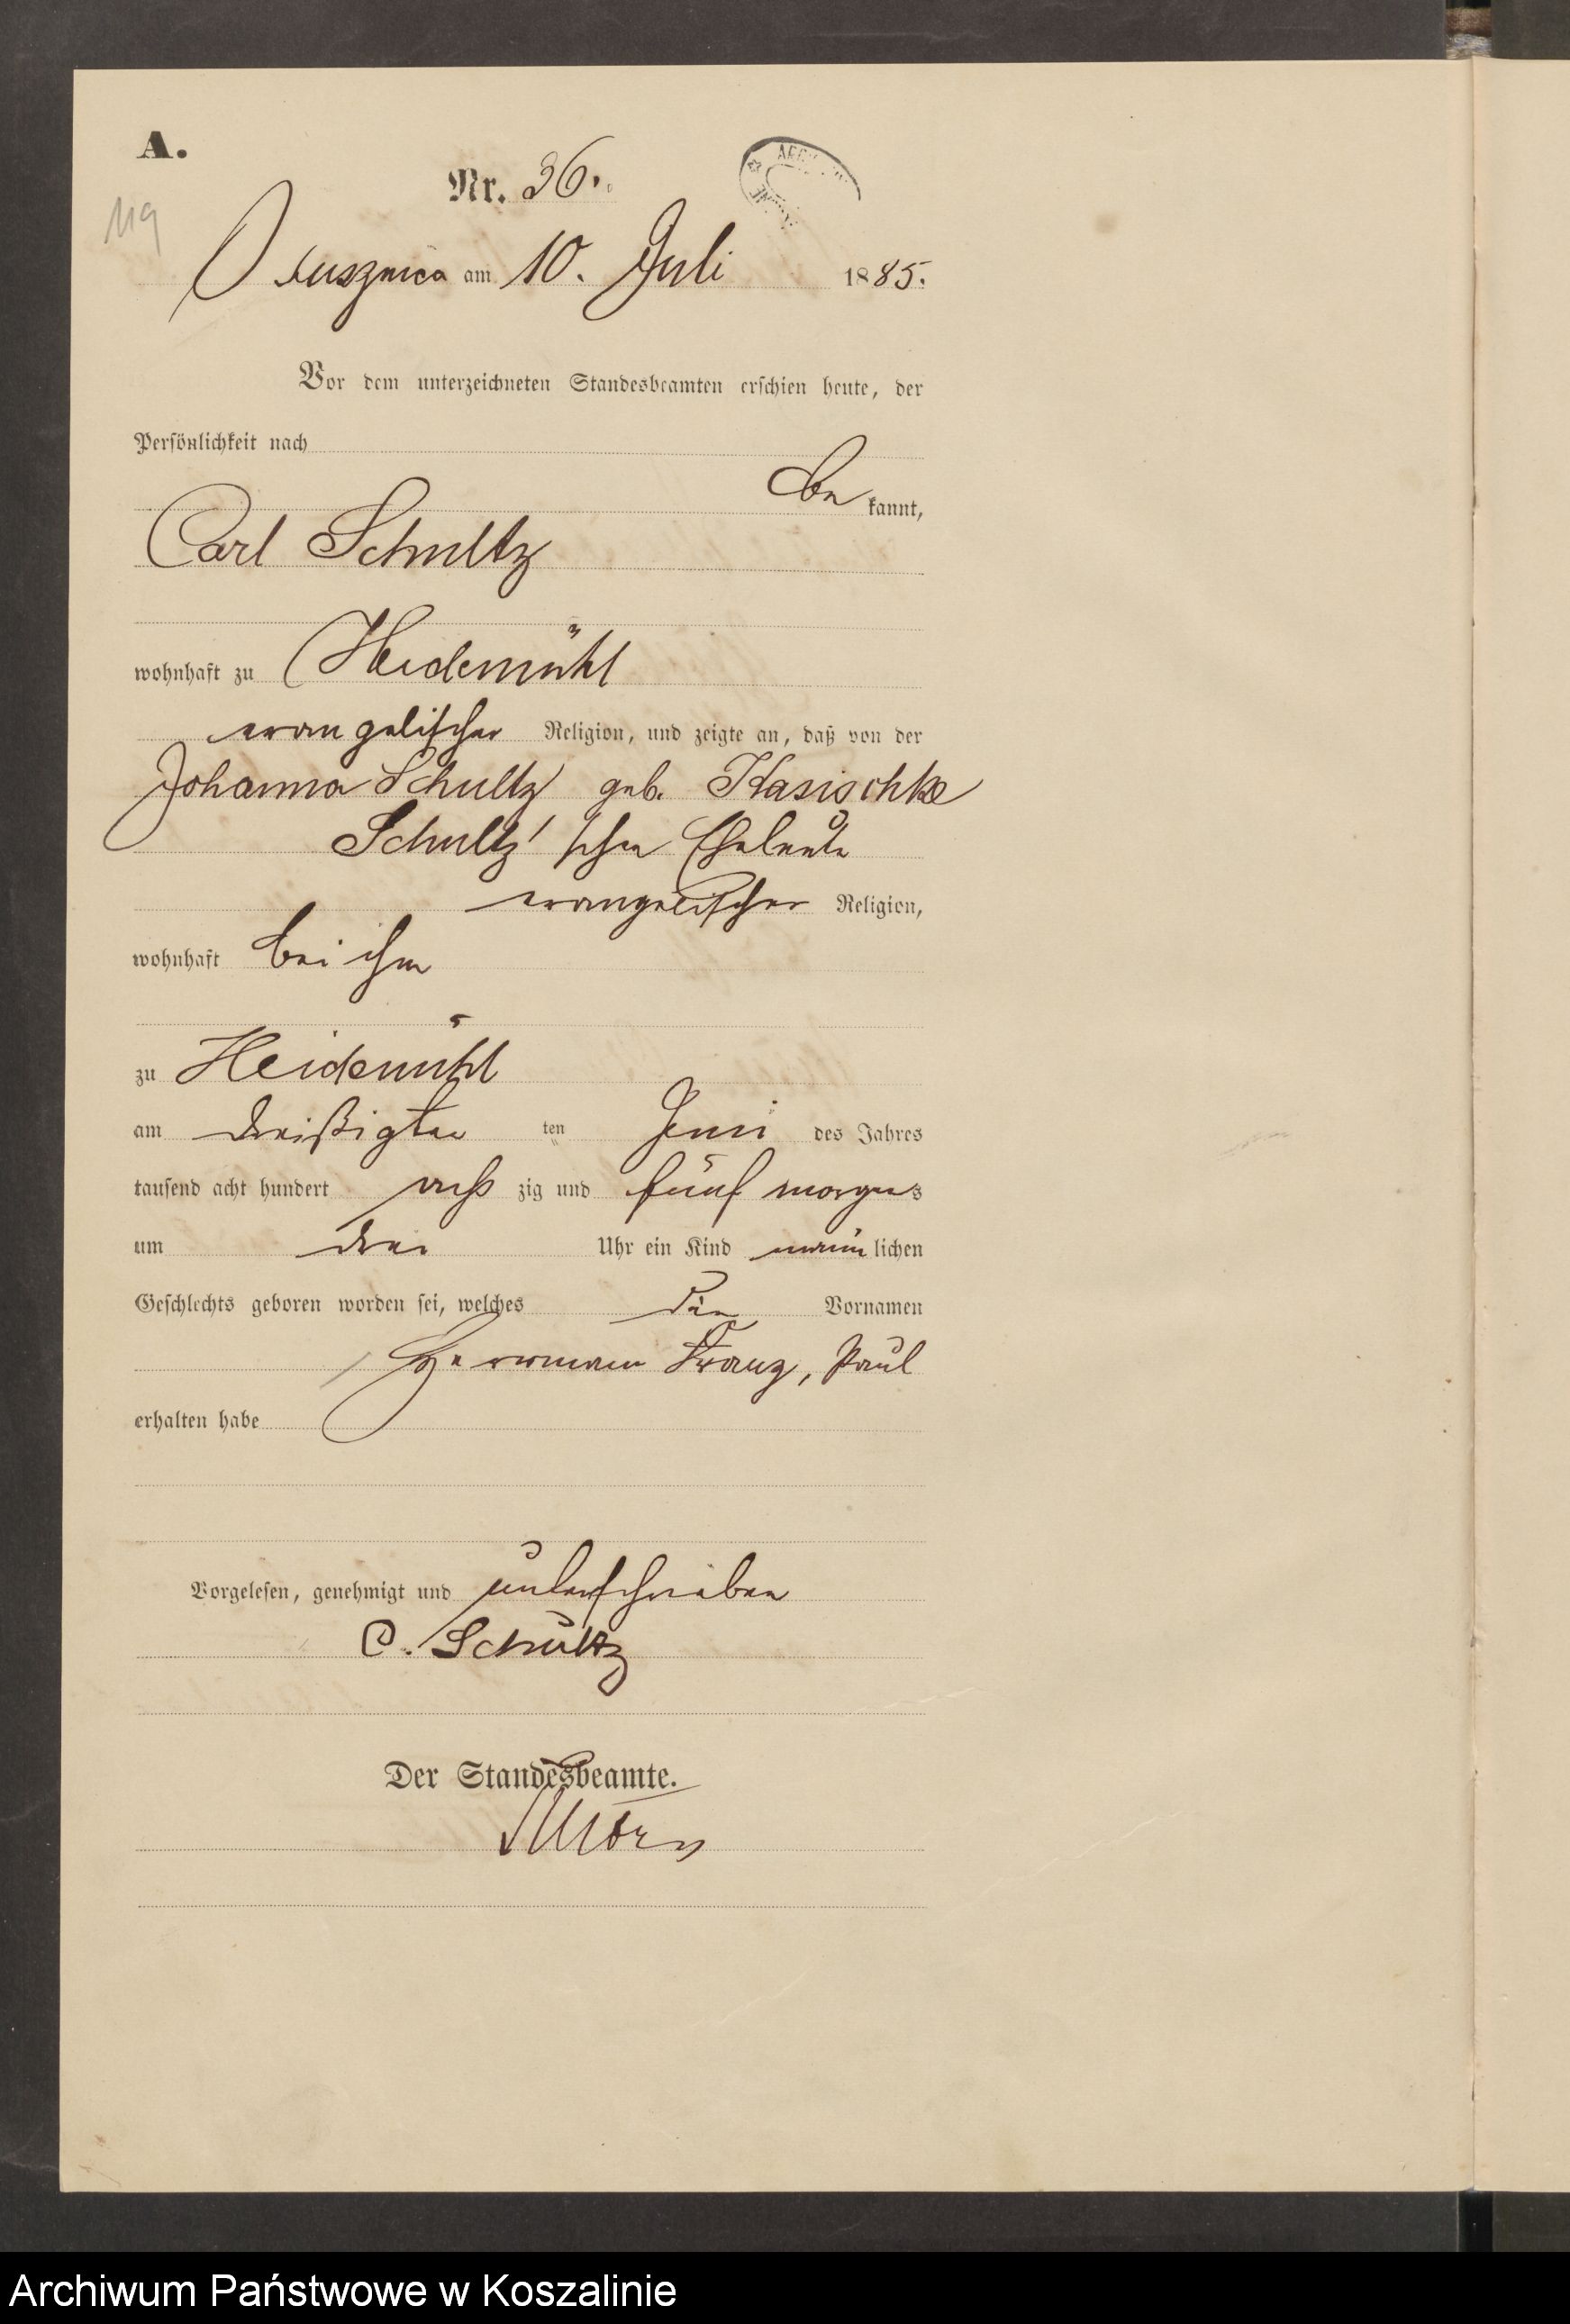 A.
Nr. 36.
119
Osusznica am 10. Juli 1885.
Vor dem unterzeichneten Standesbeamten erschien heute, der
Persönlichkeit nach
be kannt,
Carl Schultz
wohnhaft zu Heidemühl
evangelischer Religion, und zeigte an, daß von der
Johanna Schultz geb. Kasischke
Schultz'schen Eheleute
evangelischer Religion,
wohnhaft bei ihm
zu Heidemühl
am dreißigten ten Juni des Jahres
tausend acht hundert acht zig und fünf morgens
um drei Uhr ein Kind männ lichen
Geschlechts geboren worden sei, welches die Vornamen
Herrmann Franz, Paul
erhalten habe
Vorgelesen, genehmigt und unterschrieben
C. Schultz
Der Standesbeamte.
Archiwum Państwowe w Koszalinie